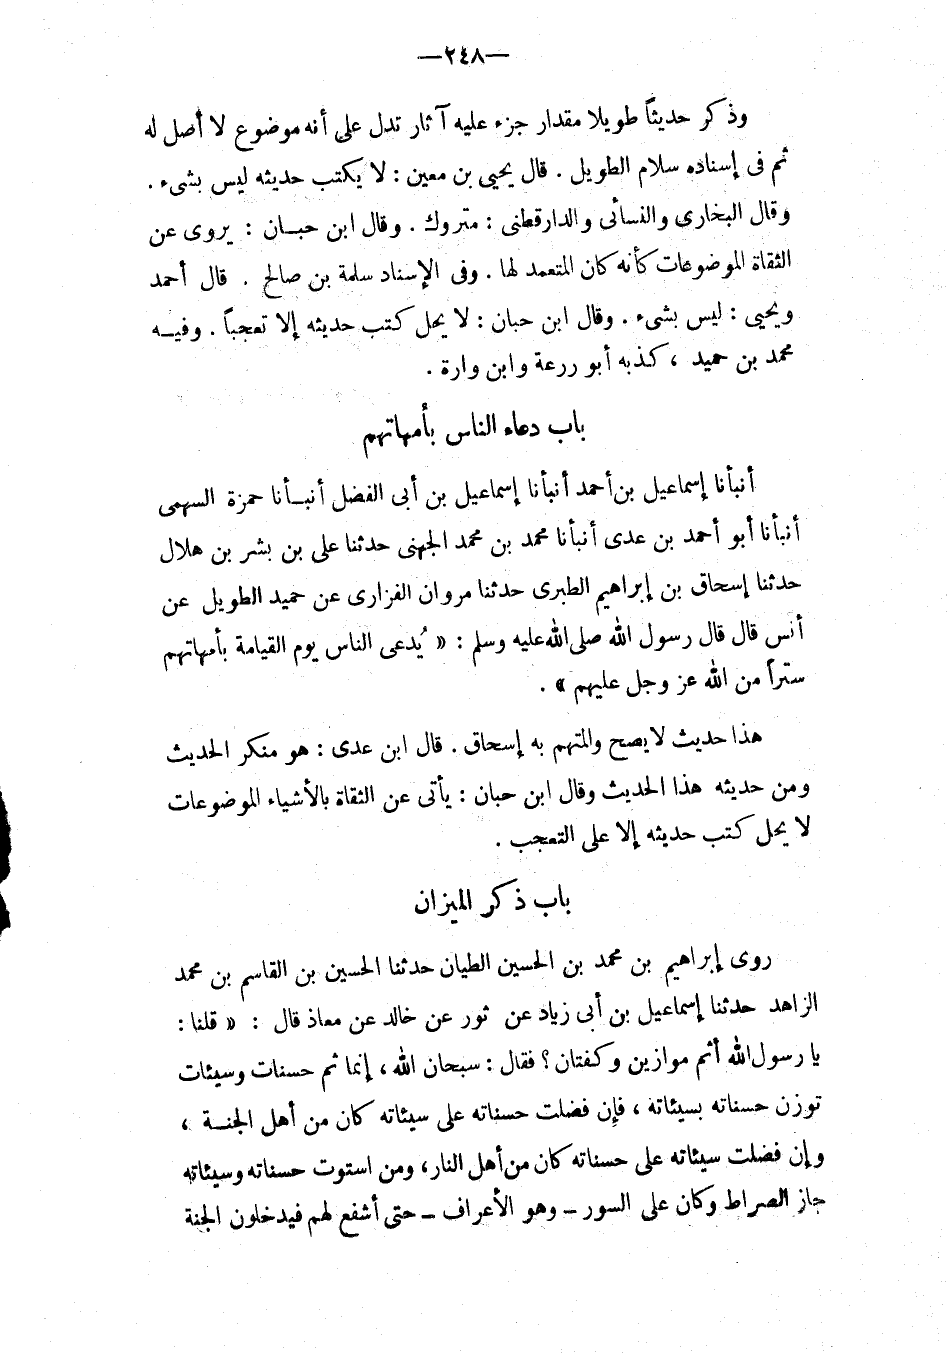 —٢٤٨—
وذكر حديثاً طويلا مقدار جزء عليه آثار تدل على أنه موضوع لا أصل له
ثم فى إسناده سلام الطويل . قال يحيى بن معين : لا يكتب حديثه ليس بشىء .
وقال البخارى والنسائى والدارقطنى : متروك . وقال ابن حبـان : يروى عن
الثقاة الموضوعات كأنه كان المتعمد لها . وفى الإسناد سلمة بن صالح . قال أحمد
ويحيى : ليس بشىء . وقال ابن حبان : لا يحل كتب حديثه إلا تعجباً . وفيـه
محمد بن حميد ، كذبه أبو ررعة وابن وارة .
باب دعاء الناس بأمهاتهم
أنبأنا إسماعيل بن أحمد أنبأنا إسماعيل بن أبى الفضل أنبـأنا حمزة السهمى
أنبأنا أبو أحمد بن عدى أنبأنا محمد بن محمد الجهنى حدثنا على بن بشر بن هلال
حدثنا إسحاق بن إبراهيم الطبرى حدثنا مروان الفزارى عن حميد الطويل عن
أنس قال قال رسول الله صلى الله عليه وسلم : « يُدعى الناس يوم القيامة بأمهاتهم
ستراً من الله عز وجل عليهم » .
هذا حديث لا يصح والمتهم به إسحاق . قال ابن عدى : هو منكر الحديث
ومن حديثه هذا الحديث وقال ابن حبان : يأتى عن الثقاة بالأشياء الموضوعات
لا يحل كتب حديثه إلا على التعجب .
باب ذكر الميزان
روى إبراهيم بن محمد بن الحسين الطيان حدثنا الحسين بن القاسم بن محمد
الزاهد حدثنا إسماعيل بن أبى زياد عن ثور عن خالد عن معاذ قال : « قلنا :
يا رسول الله أثم موازين وكفتان ؟ فقال : سبحان الله ، إنما ثم حسنات وسيئات
توزن حسناته بسيئاته ، فإن فضلت حسناته على سيئاته كان من أهل الجنـة ،
وإن فضلت سيئاته على حسناته كان من أهل النار، ومن استوت حسناته وسيئاته
جاز الصراط وكان على السور ــ وهو الأعراف ــ حتى أشفع لهم فيدخلون الجنة